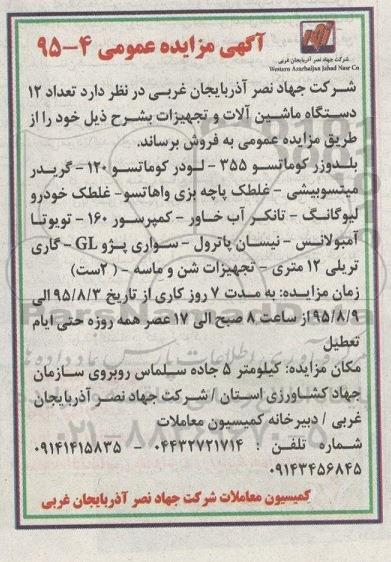 آگهی مزایده عمومی ۴-۹۵
شرکت جهاد نصر آذربایجان غربی
Western Azarbaijan Jahad Nasr Co
شرکت جهاد نصر آذربایجان غربی در نظر دارد تعداد ۱۲
دستگاه ماشین آلات و تجهیزات بشرح ذیل خود را از
طریق مزایده عمومی به فروش برساند.
بلدوزر کوماتسو ۳۵۵ - لودر کوماتسو ۱۲۰ - گریدر
میتسوبیشی - غلطک پاچه بزی واهاتسو- غلطک خودرو
لیوگانگ - تانکر آب خاور - کمپرسور ۱۶۰ - تویوتا
آمبولانس - نیسان پاترول - سواری پژو GL - گاری
تریلی ۱۲ متری - تجهیزات شن و ماسه - (۲ست)
زمان مزایده: به مدت ۷ روز کاری از تاریخ ۹۵/۸/۳ الی
۹۵/۸/۹ از ساعت ۸ صبح الی ۱۷ عصر همه روزه حتی ایام
تعطیل
مکان مزایده: کیلومتر ۵ جاده سلماس روبروی سازمان
جهاد کشاورزی استان / شرکت جهاد نصر آذربایجان
غربی / دبیرخانه کمیسیون معاملات
شماره تلفن : ۰۴۴۳۲۷۲۱۷۱۴ - ۰۹۱۴۱۴۱۵۸۳۵
۰۹۱۴۳۴۵۶۸۴۵
کمیسیون معاملات شرکت جهاد نصر آذربایجان غربی